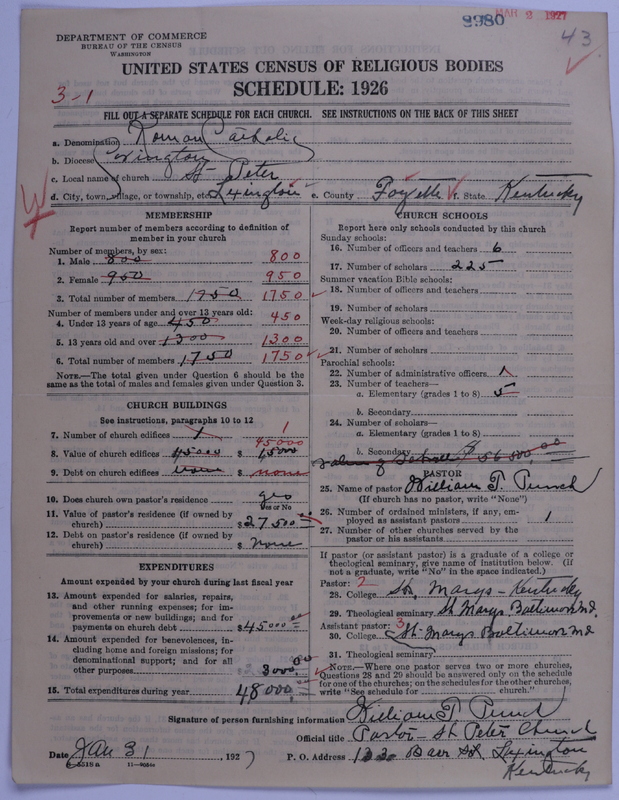 8980 MAR 2 1927
43
DEPARTMENT OF COMMERCE
BUREAU OF THE CENSUS
WASHINGTON
UNITED STATES CENSUS OF RELIGIOUS BODIES
SCHEDULE: 1926
3-1
FILL OUT A SEPARATE SCHEDULE FOR EACH CHURCH. SEE INSTRUCTIONS ON THE BACK OF THIS SHEET
a. Denomination Roman Catholic
b. Diocese Covington
c. Local name of church St Peter
d. City, town, village, or township, etc. Lexington e. County Fayette f. State Kentucky
MEMBERSHIP
Report number of members according to definition of
member in your church
Number of members, by sex:
1. Male 800 800
2. Female 950 950
3. Total number of members 1750 1750
Number of members under and over 13 years old:
4. Under 13 years of age 450 450
5. 13 years old and over 1300 1300
6. Total number of members 1750 1750
NOTE.—The total given under Question 6 should be
same as the total of males and females given under Question 3.
CHURCH BUILDINGS
See instructions, paragraphs 10 to 12
7. Number of church edifices 1 1
45000
8. Value of church edifices 45000 $ 15000
9. Debt on church edifices none $ none
10. Does church own pastor's residence yes
Yes or No
11. Value of pastor's residence (if owned by
church) $ 27500
12. Debt on pastor's residence (if owned by
church) $ none
EXPENDITURES
Amount expended by your church during last fiscal year
13. Amount expended for salaries, repairs,
and other running expenses; for im-
provements or new buildings; and for
payments on church debt $ 45000 00
14. Amount expended for benevolences, in-
cluding home and foreign missions; for
denominational support; and for all
other purposes 3000 00
15. Total expenditures during year 48000
CHURCH SCHOOLS
Report here only schools conducted by this church
Sunday schools:
16. Number of officers and teachers 6
17. Number of scholars 225
Summer vacation Bible schools:
18. Number of officers and teachers
19. Number of scholars
Week-day religious schools:
20. Number of officers and teachers
21. Number of scholars
Parochial schools:
22. Number of administrative officers 1
23. Number of teachers—
a. Elementary (grades 1 to 8) 5
b. Secondary
24. Number of scholars—
a. Elementary (grades 1 to 8)
b. Secondary
Value of School $ 56500 00
PASTOR
25. Name of pastor William T. Punch
(If church has no pastor, write "None")
26. Number of ordained ministers, if any, em-
ployed as assistant pastors 1
27. Number of other churches served by the
pastor or his assistants
If pastor (or assistant pastor) is a graduate of a college or
theological seminary, give name of institution below. (If
not a graduate, write "No" in the space indicated.)
Pastor: 2
28. College St. Marys - Kentucky
29. Theological seminary St Marys Baltimore Md.
Assistant pastor: 3
30. College St. Marys Baltimore Md
31. Theological seminary
NOTE.—Where one pastor serves two or more churches,
Questions 28 and 29 should be answered only on the schedule
for one of the churches; on the schedules for the other churches,
write "See schedule for church."
Signature of person furnishing information William T. Punch
Official title Pastor - St Peter Church
Date Jan 31, 1927 P. O. Address Barr St Lexington
11-8044 Kentucky